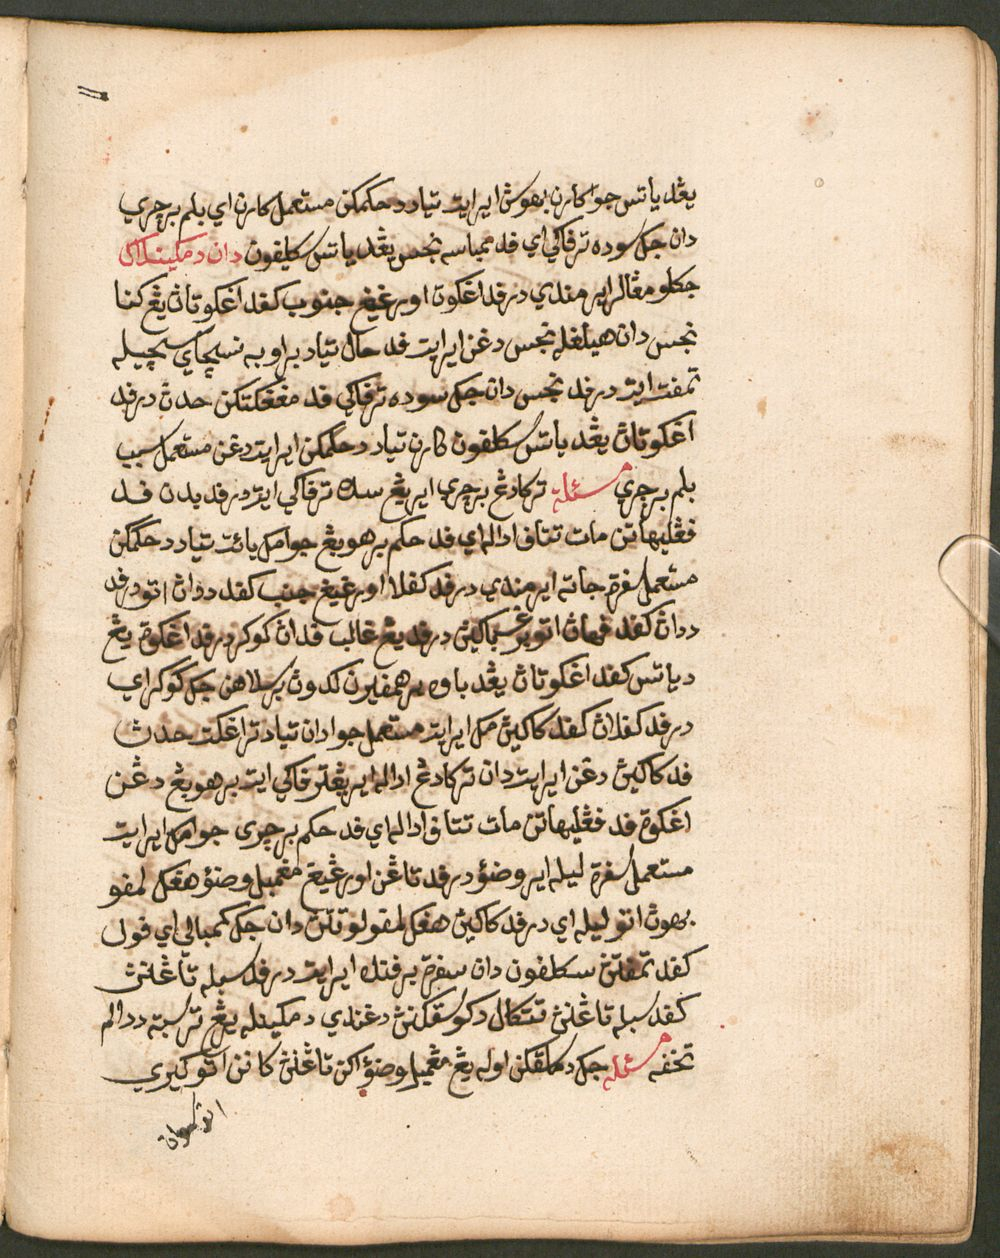 يڠد ياتس جوا كارن بهوس اير ايت تياد د حكمكن مستعمل كارن اي بلم برچري
دان جك سوده ترفاكي اي فد ممباسه نجس يڠد ياتس كليفون دان دمكينلاكي
جكلو مڠالر اير مندي درفد اڠكوت اورڠيڠ جنوب كفد اڠكوتاڽ يڠ كنا
نجس دان هيلڠله نجس دڠن اير ايت فد حال تياد براوبه نسچاي سچيله
تمفت ايت درفد نجس دان جك سوده ترفاكي فد مڠڠكتكن حدث درفد
اڠكوتاڽ يڠد ياتس سكلفون كارن تياد دحكمكن اير ايت دڠن مستعمل سبب
بلم برچري مسئله تركادڠ برچري اير يڠ سده ترفاكي ايت درفد بدن فد
فڠليهاتن مات تتاف اداله اي فد حكم برهوبڠ جوا مك يائت تياد دحكمكن
مستعمل سفرة جاته اير مندي درفد كفلا اورڠيڠ جنب كفد دواڽ اتو درفد
دواڽ كفد فهاڽ اتو برڠ سباكيڽ درفد يڠ غالب فداڽ كوكر درفد اڠكوة يڠ
دياتس كفد اڠكوتاڽ يڠد باوه برهمفيرن لكدوڽ برسلاهن جك كوكر اي
درفد كفلاڽ كفد كاكيڽ مك اير ايت مستعمل جوا دان تياد تراڠكت حدث
فد كاكيڽ دڠن اير ايت دان تركادڠ اداله اير يڠ ترفاكي ايت برهوبڠ دڠن
اڠكوة فد فڠليهاتن مات تتاف اداله اي فد حكم برچري جوا مك اير ايت
مستعمل سفرة ليله اير وضؤ درفد تاڠن اورڠيڠ مڠمبل وضؤ هڠك لمفو
بهوڽ اتو ليله اي درفد كاكيڽ هڠك لمفو لوتتڽ دان جك كمبالي اي فول
كفد تمفتڽ سكلفون دان سفرة برفنده اير ايت درفد سبله تاڠنڽ
كفد سبله تاڠنڽ تتكال دكوسقكنڽ دڠندي دمكينله يڠ ترسبة ددالم
تحفه مسئله جك دملقكن اوله يڠ مڠمبل وضؤ اكن تاڠنڽ كانن اتو كيري
اتو كدوان